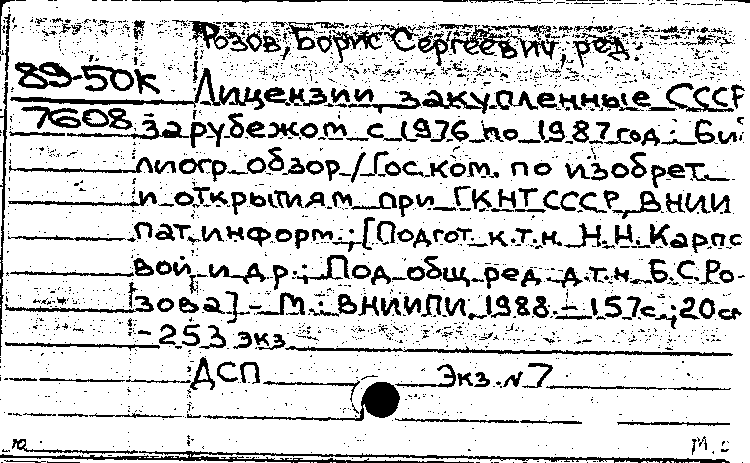 Розов, Борис Сергеевич, ред.
89-50К
7608
Лицензии, закупленные СССР
за рубежом с 1976 по 1987 год: Биб
лиогр. обзор / Гос. ком. по изобрет.
и открытиям при ГКНТ СССР, ВНИИ
пат. информ.; [Подгот. к.т.н. Н.Н. Карпо
вой и др.; Под общ. ред. д.т.н. Б.С. Ро-
зова] - М.: ВНИИПИ, 1988. - 157с.; 20см
- 253 экз.
ДСП Экз. № 7
ю